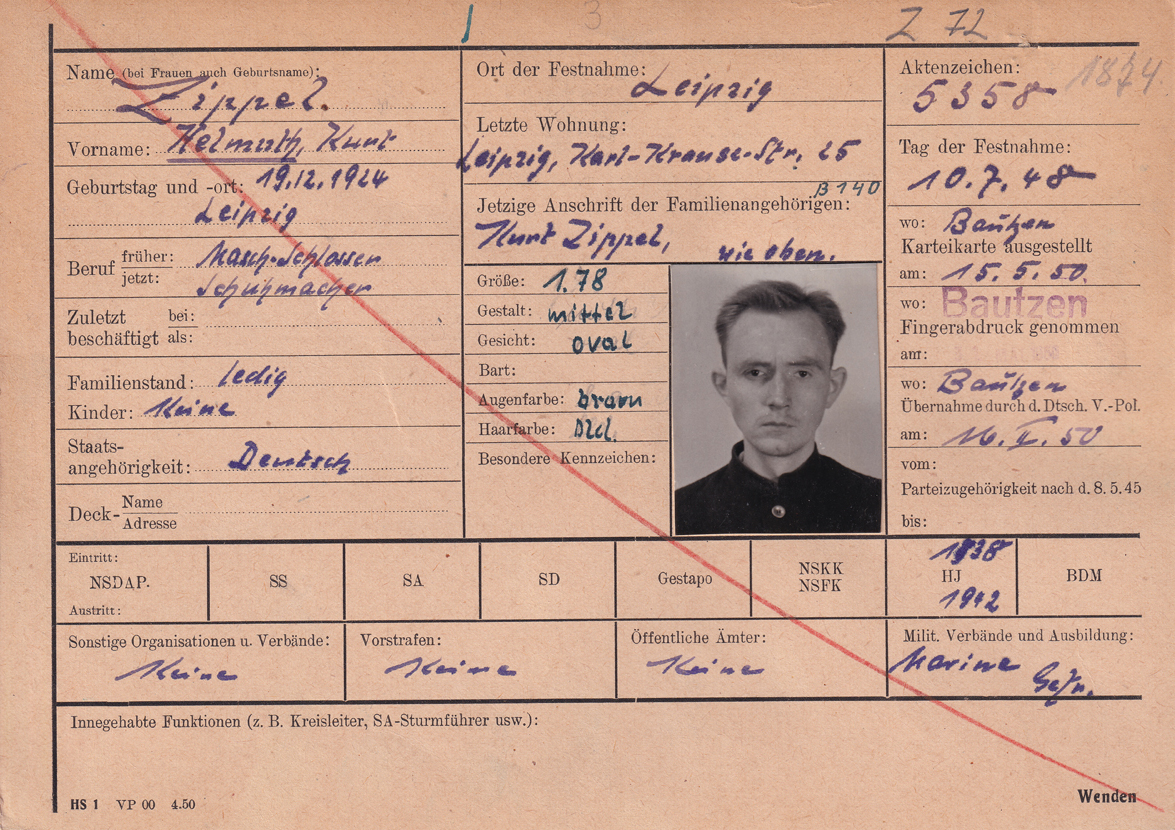 3
Z 72
Name (bei Frauen auch Geburtsname):
Zippel.
Vorname: Helmuth, Kurt
Geburtstag und -ort: 19.12.1924
Leipzig
Beruf früher: Masch.-Schlosser
jetzt: Schuhmacher
Zuletzt beschäftigt bei:
als:
Familienstand: ledig
Kinder: Keine
Staats-
angehörigkeit: Deutsch
Deck- Name
Adresse
Ort der Festnahme:
Leipzig
Letzte Wohnung:
Leipzig, Karl-Krause-Str. 25
B 140
Jetzige Anschrift der Familienangehörigen:
Kurt Zippel, wie oben.
Größe: 1.78
Gestalt: mittel
Gesicht: oval
Bart:
Augenfarbe: braun
Haarfarbe: Dbl.
Besondere Kennzeichen:
Aktenzeichen: 1874
5358
Tag der Festnahme:
10.7.48
wo: Bautzen
Karteikarte ausgestellt
am: 15.5.50.
wo: Bautzen
Fingerabdruck genommen
am:
wo: Bautzen
Übernahme durch d. Dtsch. V.-Pol.
am: 16.V.50
vom:
Parteizugehörigkeit nach d. 8.5.45
bis:
Eintritt:
NSDAP.
Austritt:
SS
SA
SD
Gestapo
NSKK
NSFK
1938
HJ
1942
BDM
Sonstige Organisationen u. Verbände:
Keine
Vorstrafen:
Keine
Öffentliche Ämter:
Keine
Milit. Verbände und Ausbildung:
Marine
Gefr.
Innegehabte Funktionen (z. B. Kreisleiter, SA-Sturmführer usw.):
HS 1 VP 00 4.50
Wenden